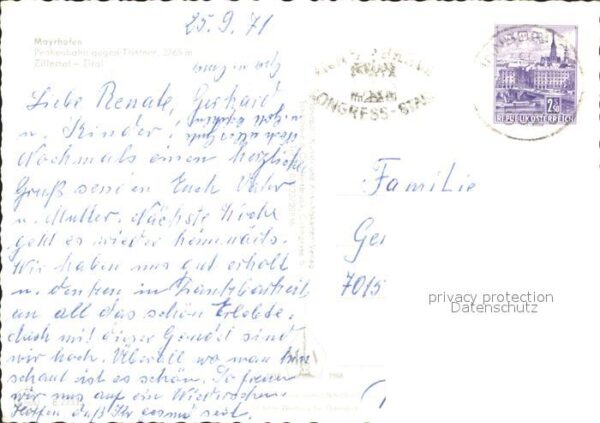 25.9.71
Mayrhofen
Penkenbahn gegen Tristner, 2765 m
Zillertal - Tirol
Liebe Renate, Gerhard
u. Kinder!
Nochmals einen herzlichen
Gruß senden Euch Vater
u. Mutter. Nächste Woche
geht es wieder heimwärts.
Wir haben uns gut erholt
u. denken in Dankbarkeit
an all das schön Erlebte.
Auch mit dieser Gondel sind
wir hoch. Überall wo man hin
schaut ist es schön. So freuen
wir uns auf ein Wiedersehen
Hoffen daß Ihr gesund seid.
KONGRESS-STADT
2.50
REPUBLIK ÖSTERREICH
Familie
Ger
7015
privacy protection
Datenschutz